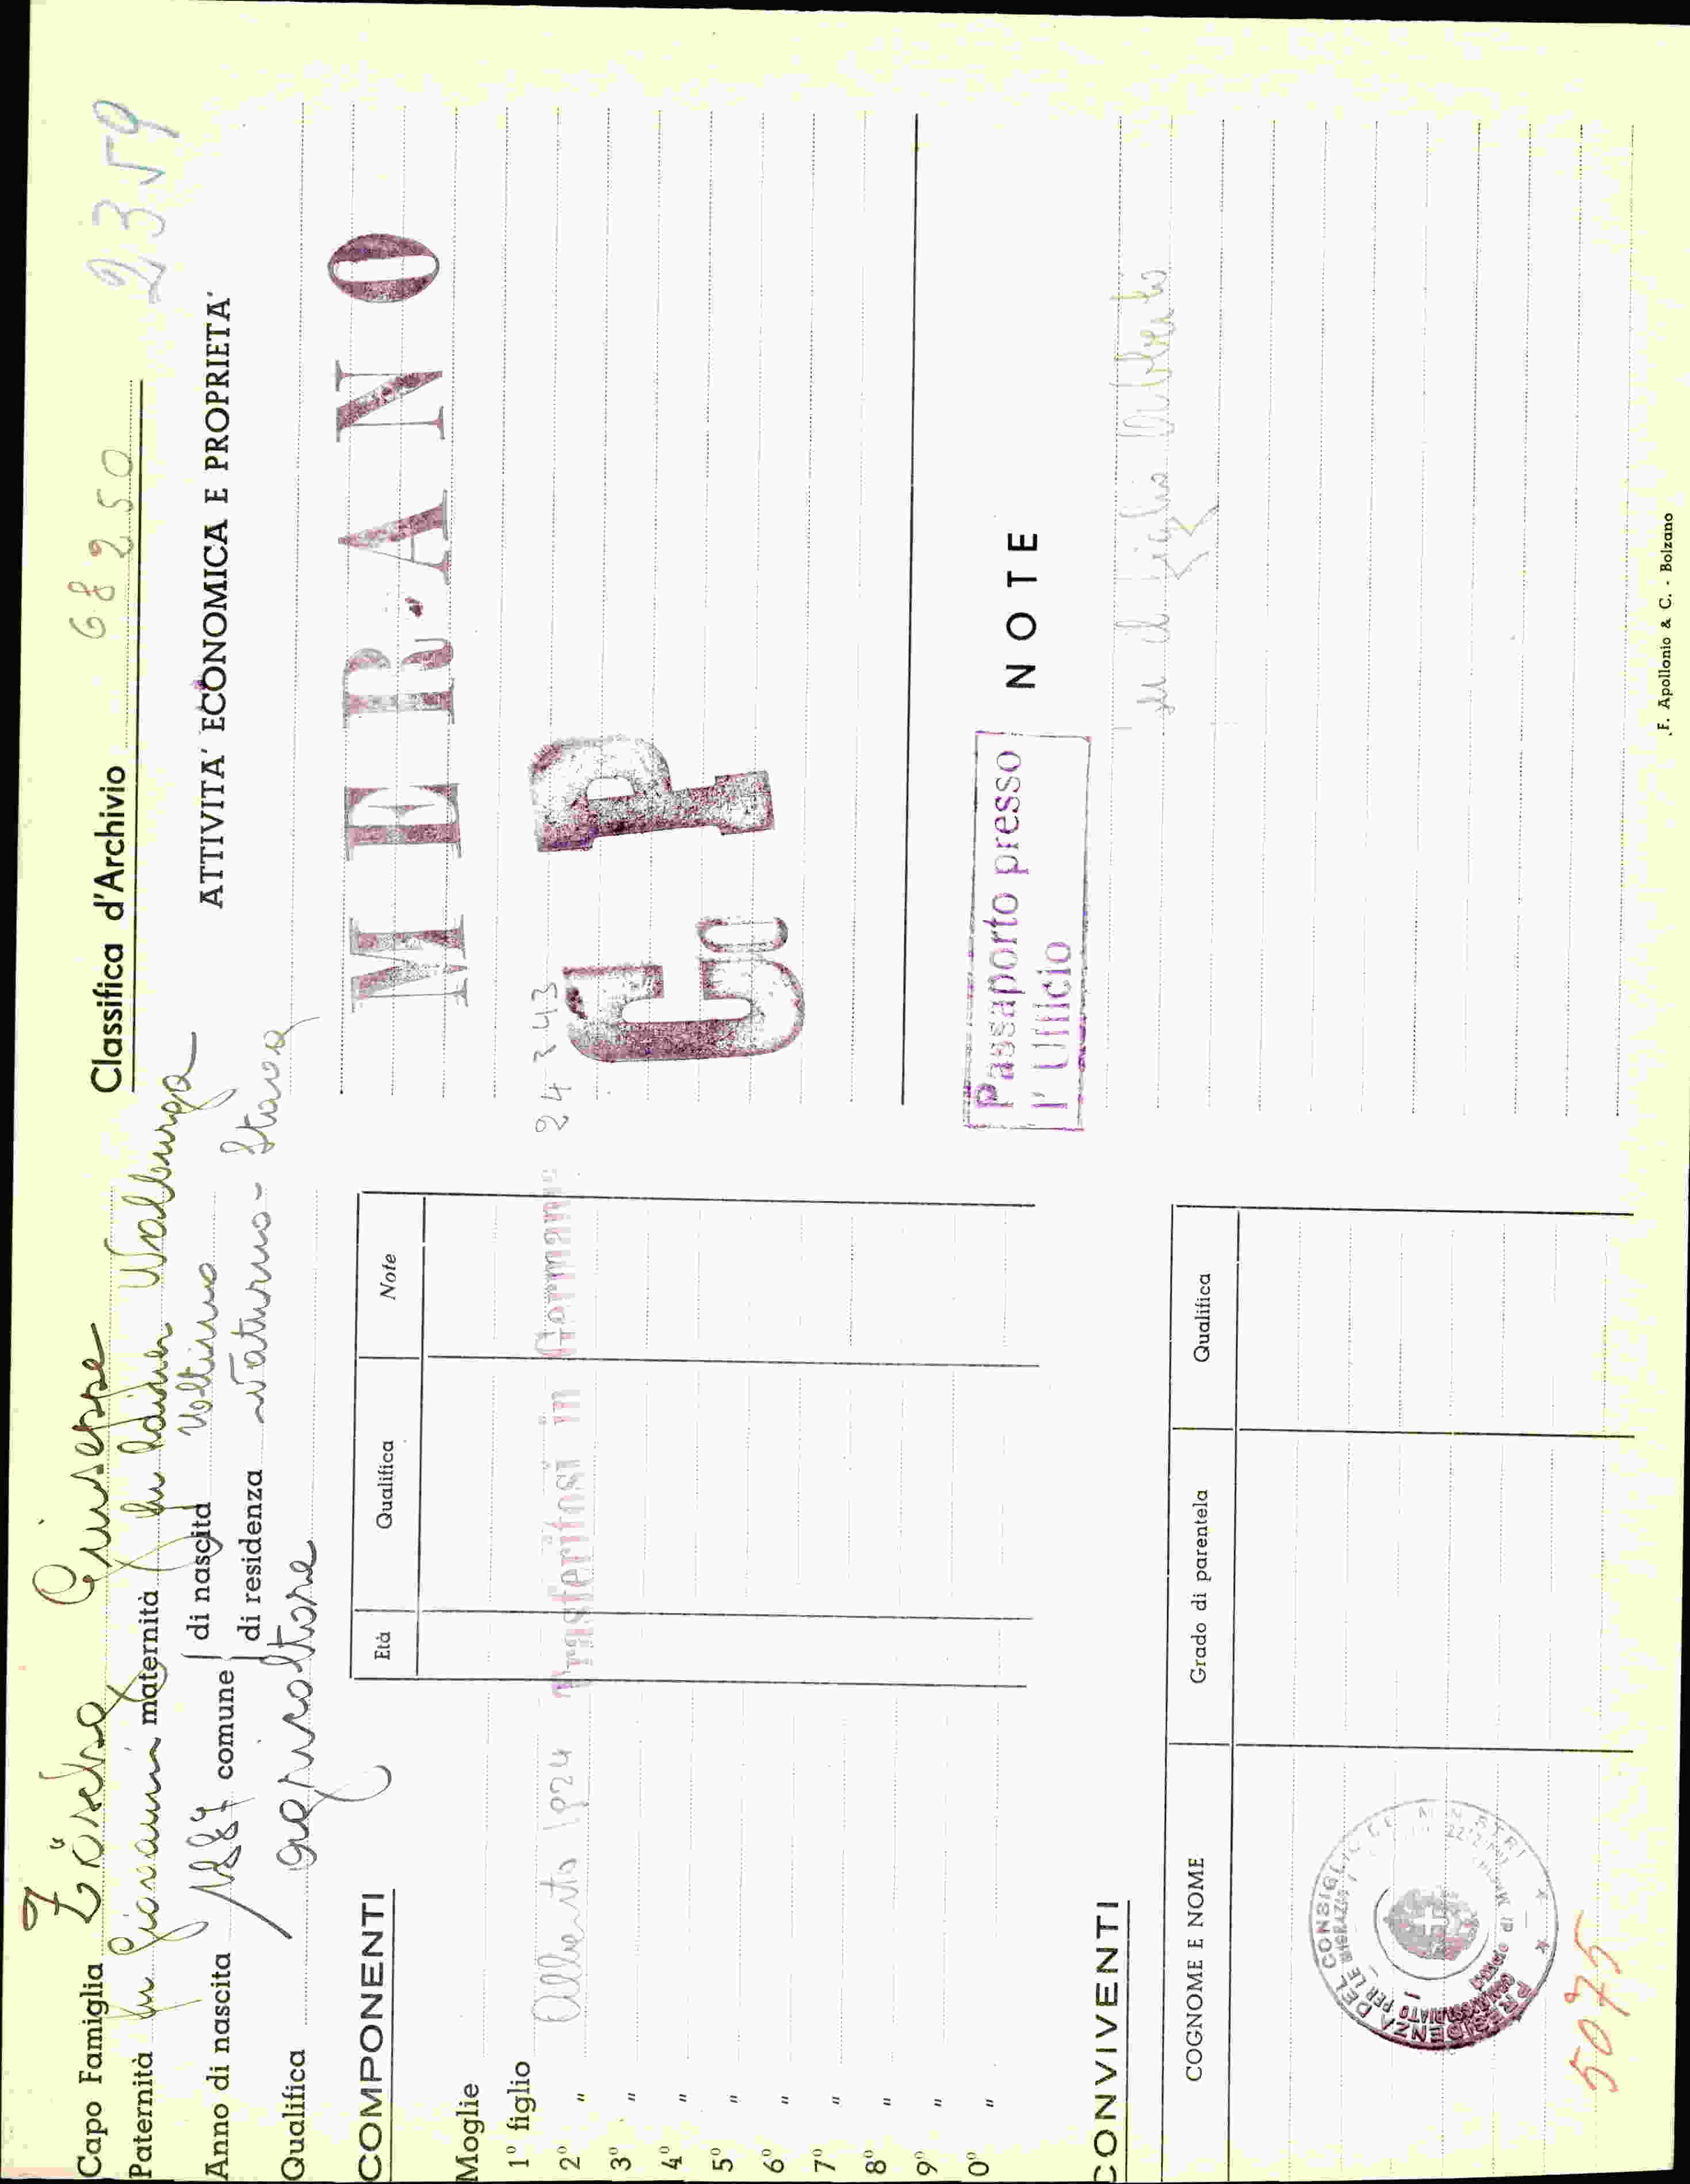 Capo Famiglia Zöschg Giuseppe
Paternità fu Giovanni maternità fu Walburga
Anno di nascita comune di nascita Voltino
di residenza Naturno - Stava
Qualifica agricoltore
COMPONENTI
Età Qualifica Note
Moglie
1° figlio
2° " Alberto 1924 Trasferitosi in Germania 24 3 43
3° "
4° "
5° "
6° "
7° "
8° "
9° "
0° "
CONVIVENTI
COGNOME E NOME Grado di parentela Qualifica
PRESIDENZA DEL CONSIGLIO DEI MINISTRI
5075
Classifica d'Archivio 68250
2359
ATTIVITA' ECONOMICA E PROPRIETA'
MERANO
G P
Passaporto presso
l'Ufficio
NOTE
il figlio
F. Apollonio & C. - Bolzano